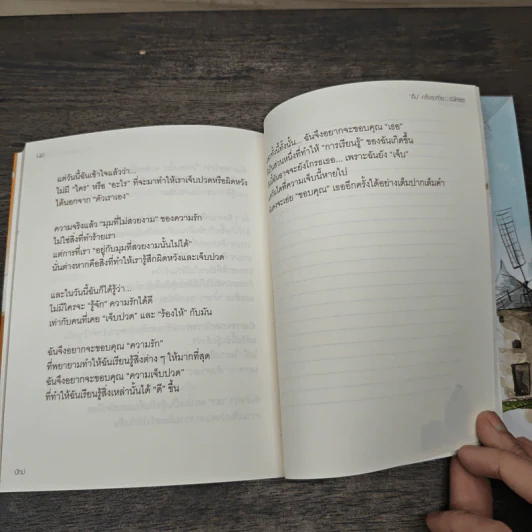 แต่วันนี้ฉันเข้าใจแล้วว่า...
ไม่มี "ใคร" หรือ "อะไร" ที่จะมาทำให้เราเจ็บปวดหรือผิดหวัง
ได้นอกจาก "ตัวเราเอง"
ความจริงแล้ว "มุมที่ไม่สวยงาม" ของความรัก
ไม่ใช่สิ่งที่ทำร้ายเรา
แต่การที่เรา "อยู่กับมุมที่สวยงามนั้นไม่ได้"
นั่นต่างหากคือสิ่งที่ทำให้เรารู้สึกผิดหวังและเจ็บปวด
และในวันนี้ฉันก็ได้รู้ว่า...
ไม่มีใครจะ "รู้จัก" ความรักได้ดี
เท่ากับคนที่เคย "เจ็บปวด" และ "ร้องไห้" กับมัน
ฉันจึงอยากจะขอบคุณ "ความรัก"
ที่พยายามทำให้ฉันเรียนรู้สิ่งต่าง ๆ ให้มากที่สุด
ฉันจึงอยากจะขอบคุณ "ความเจ็บปวด"
ที่ทำให้ฉันเรียนรู้สิ่งเหล่านั้นได้ "ดี" ขึ้น
ทั้งนั้น... ฉันจึงอยากจะขอบคุณ "เธอ"
ส่วนหนึ่งที่ทำให้ "การเรียนรู้" ของฉันเกิดขึ้น
อาจจะยังโกรธเธอ... เพราะฉันยัง "เจ็บ"
ที่ความเจ็บนี้หายไป
จะเอ่ย "ขอบคุณ" เธออีกครั้งได้อย่างเต็มปากเต็มคำ